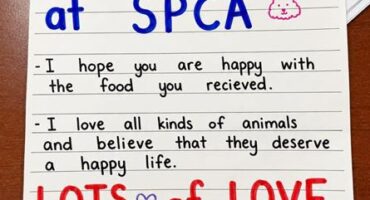 at SPCA
- I hope you are happy with
the food you recieved.
- I love all kinds of animals
and believe that they deserve
a happy life.
LOTS of LOVE